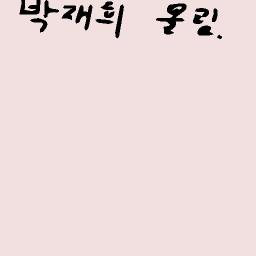 박재희 올림.